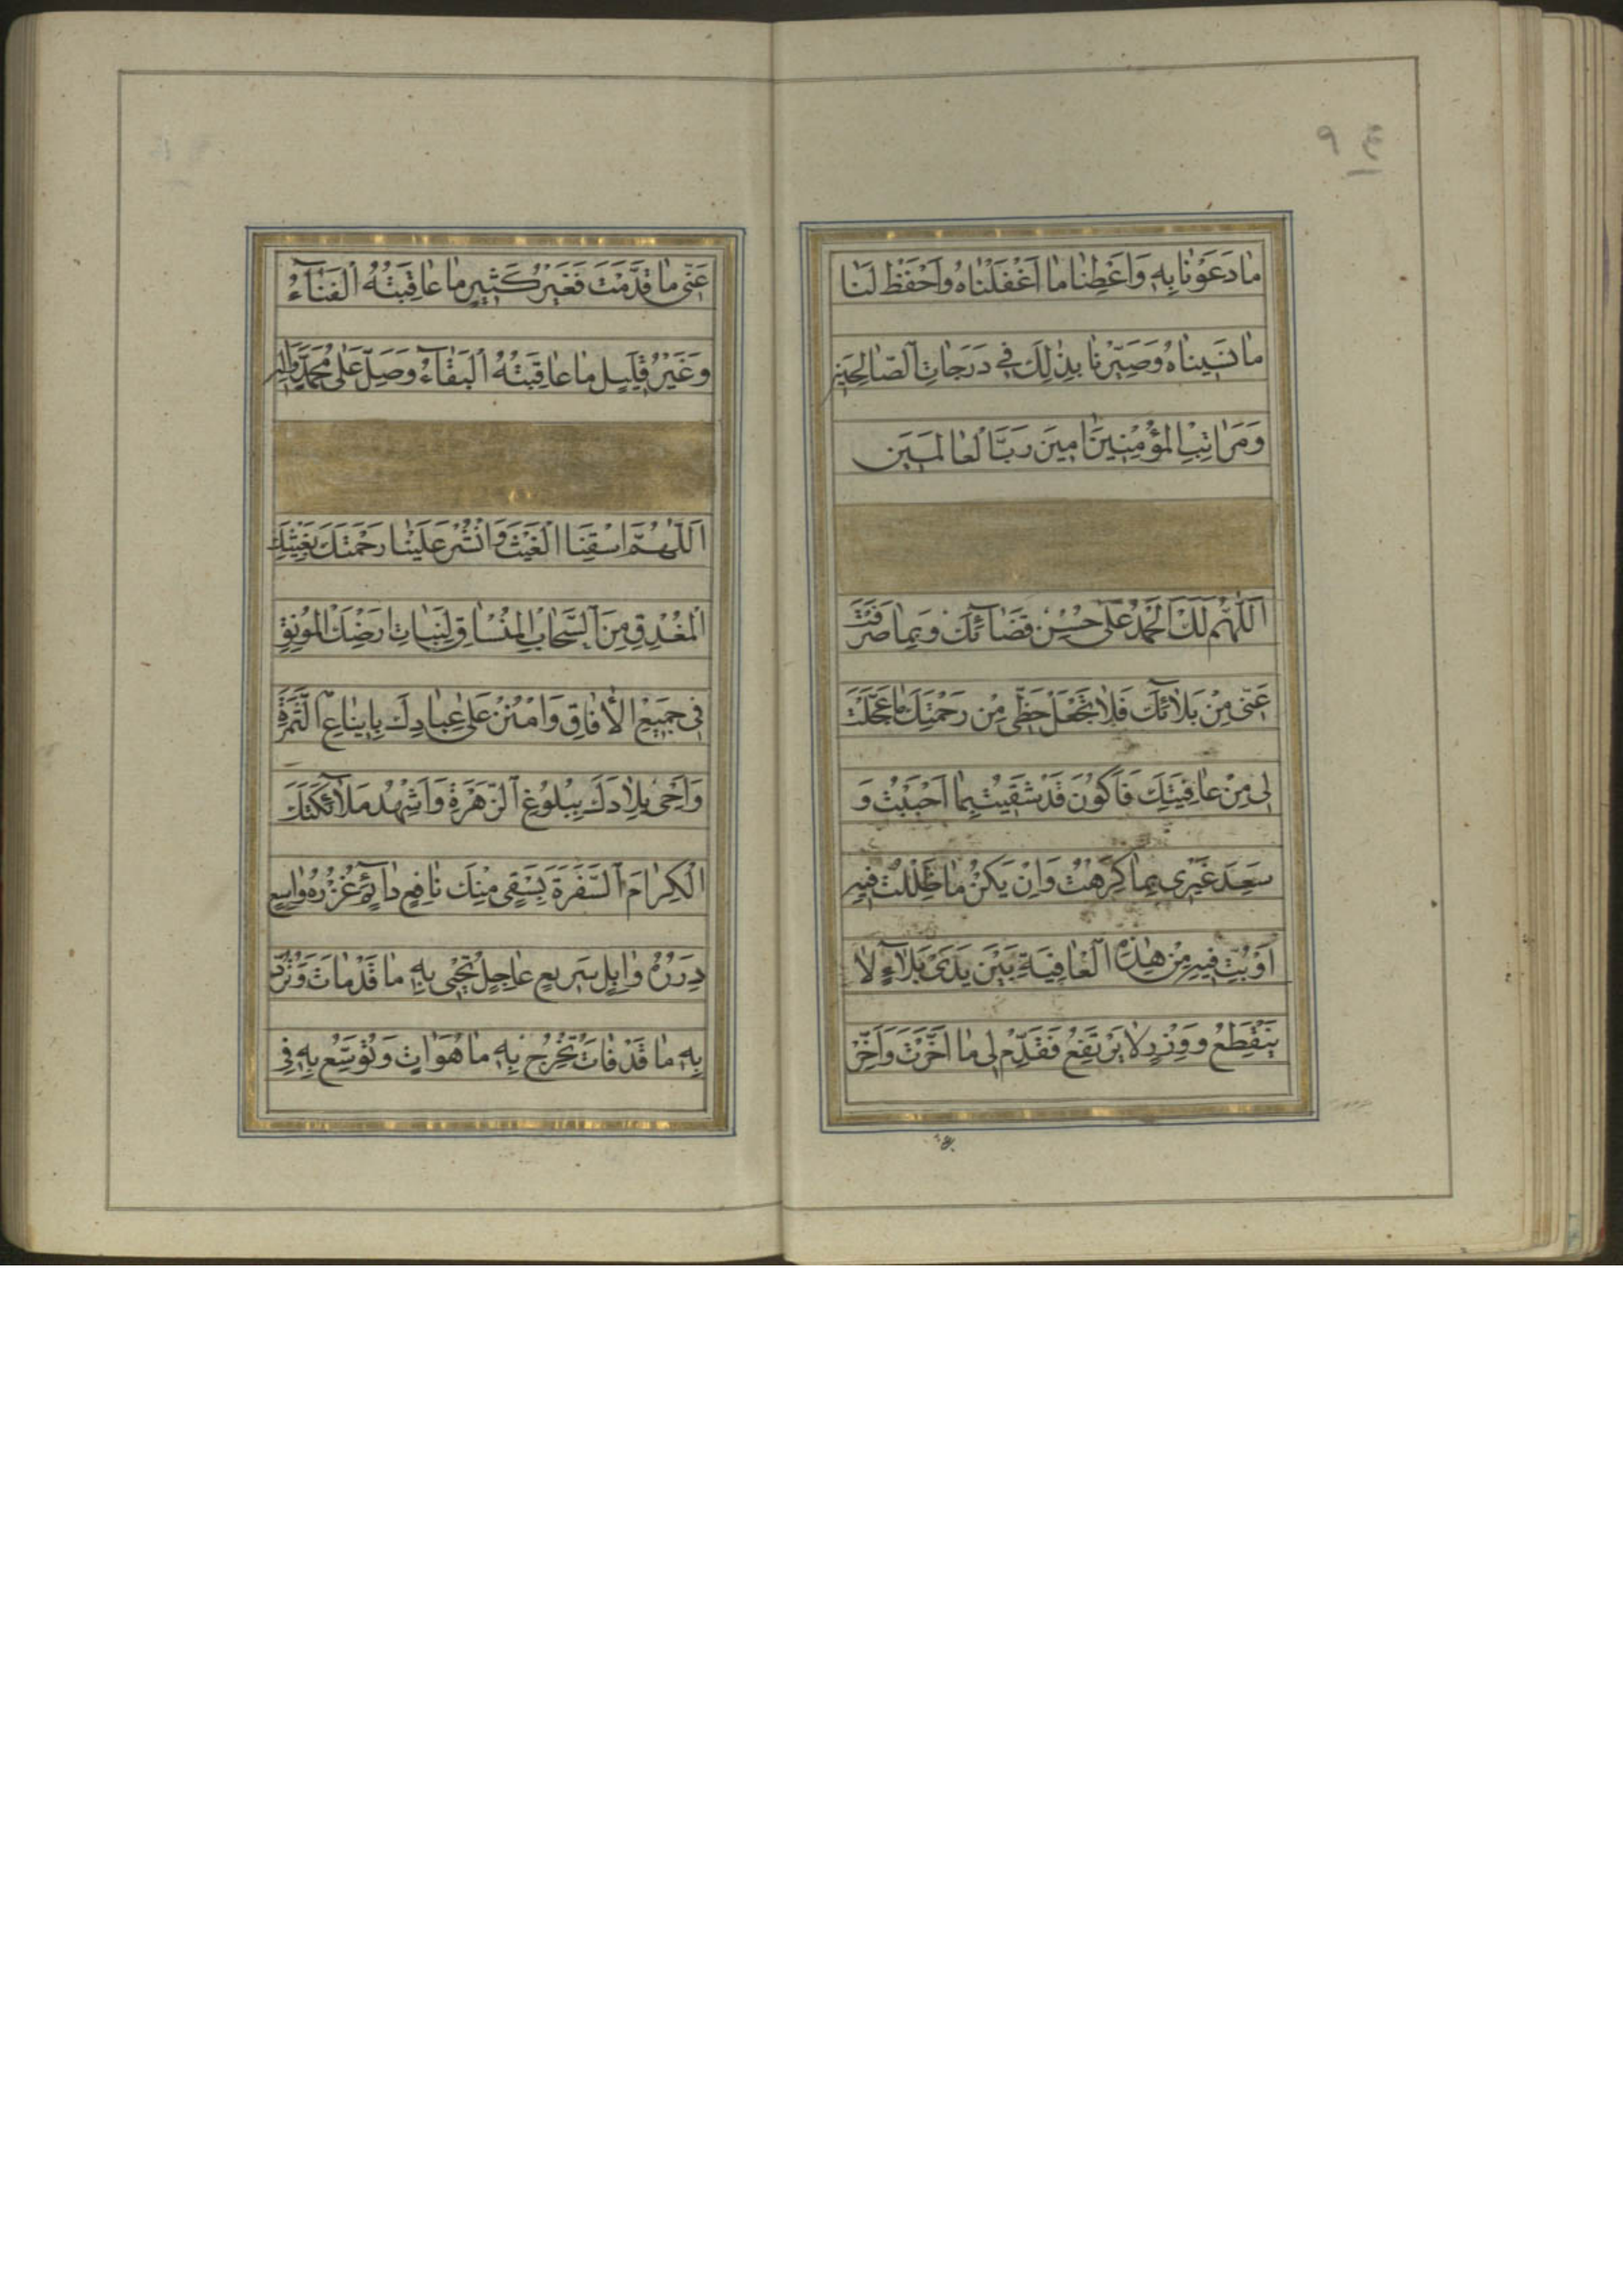 مَا دَعَوْنَا بِهِ وَاَعْطِنَا مَا اَغْفَلْنَاهُ وَاحْفَظْ لَنَا
مَا نَسِينَاهُ وَصَيِّرْنَا بِذٰلِكَ فِي دَرَجَاتِ الصَّالِحِينَ
وَمَرَاتِبِ الْمُؤْمِنِينَ اٰمِينَ رَبَّ الْعَالَمِينَ
اَللّٰهُمَّ لَكَ الْحَمْدُ عَلٰى حُسْنِ قَضَآئِكَ وَبِمَا صَرَفْتَ
عَنّى مِنْ بَلَآئِكَ فَلَا تَجْعَلْ حَظّى مِنْ رَحْمَتِكَ مَا عَجَّلْتَ
لى مِنْ عَافِيَتِكَ فَاَكُونَ قَدْ شَقِيتُ بِمَا اَحْبَبْتُ وَ
سَعِدَ غَيْرى بِمَا كَرِهْتُ وَاِنْ يَكُنْ مَا ظَلِلْتُ فِيهِ
اَوْ بِتُّ فِيهِ مِنْ هٰذِهِ الْعَافِيَةِ بَيْنَ يَدَىْ بَلَآءٍ لَا
يَنْقَطِعُ وَوِزْرٍ لَا يَرْتَفِعُ فَقَدِّمْ لى مَا اَخَّرْتَ وَاَخِّرْ
عَنّى مَا قَدَّمْتَ فَغَيْرُ كَثِيرٍ مَا عَاقِبَتُهُ الْفَنَآءُ
وَغَيْرُ قَلِيلٍ مَا عَاقِبَتُهُ الْبَقَآءُ وَصَلِّ عَلٰى مُحَمَّدٍ وَاٰلِهِ
اَللّٰهُمَّ اسْقِنَا الْغَيْثَ وَانْشُرْ عَلَيْنَا رَحْمَتَكَ بِغَيْثِكَ
الْمُغْدِقِ مِنَ السَّحَابِ الْمُنْسَاقِ لِنَبَاتِ اَرْضِكَ الْمُونِقِ
فِى جَمِيعِ الْاٰفَاقِ وَامْنُنْ عَلٰى عِبَادِكَ بِاِينَاعِ الثَّمَرَةِ
وَاَحْىِ بِلَادَكَ بِبُلُوغِ الزَّهَرَةِ وَاَشْهِدْ مَلَآئِكَتَكَ
الْكِرَامَ السَّفَرَةَ بِسَقْىٍ مِنْكَ نَافِعٍ دَآئِمٍ غُزْرُهُ وَاسِعٍ
دِرَرُهُ وَابِلٍ سَرِيعٍ عَاجِلٍ تُحْيى بِهِ مَا قَدْ مَاتَ وَتَرُدُّ
بِهِ مَا قَدْ فَاتَ وَتُخْرِجُ بِهِ مَا هُوَ اٰتٍ وَتُوَسِّعُ بِهِ فِى